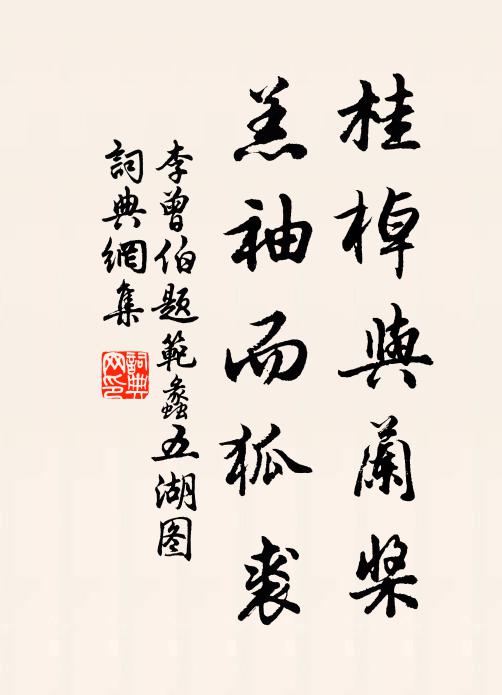 桂棹與蘭槳
羔袖而狐裘
李曾伯题範蠡五湖图
詞典網集
詞典网印